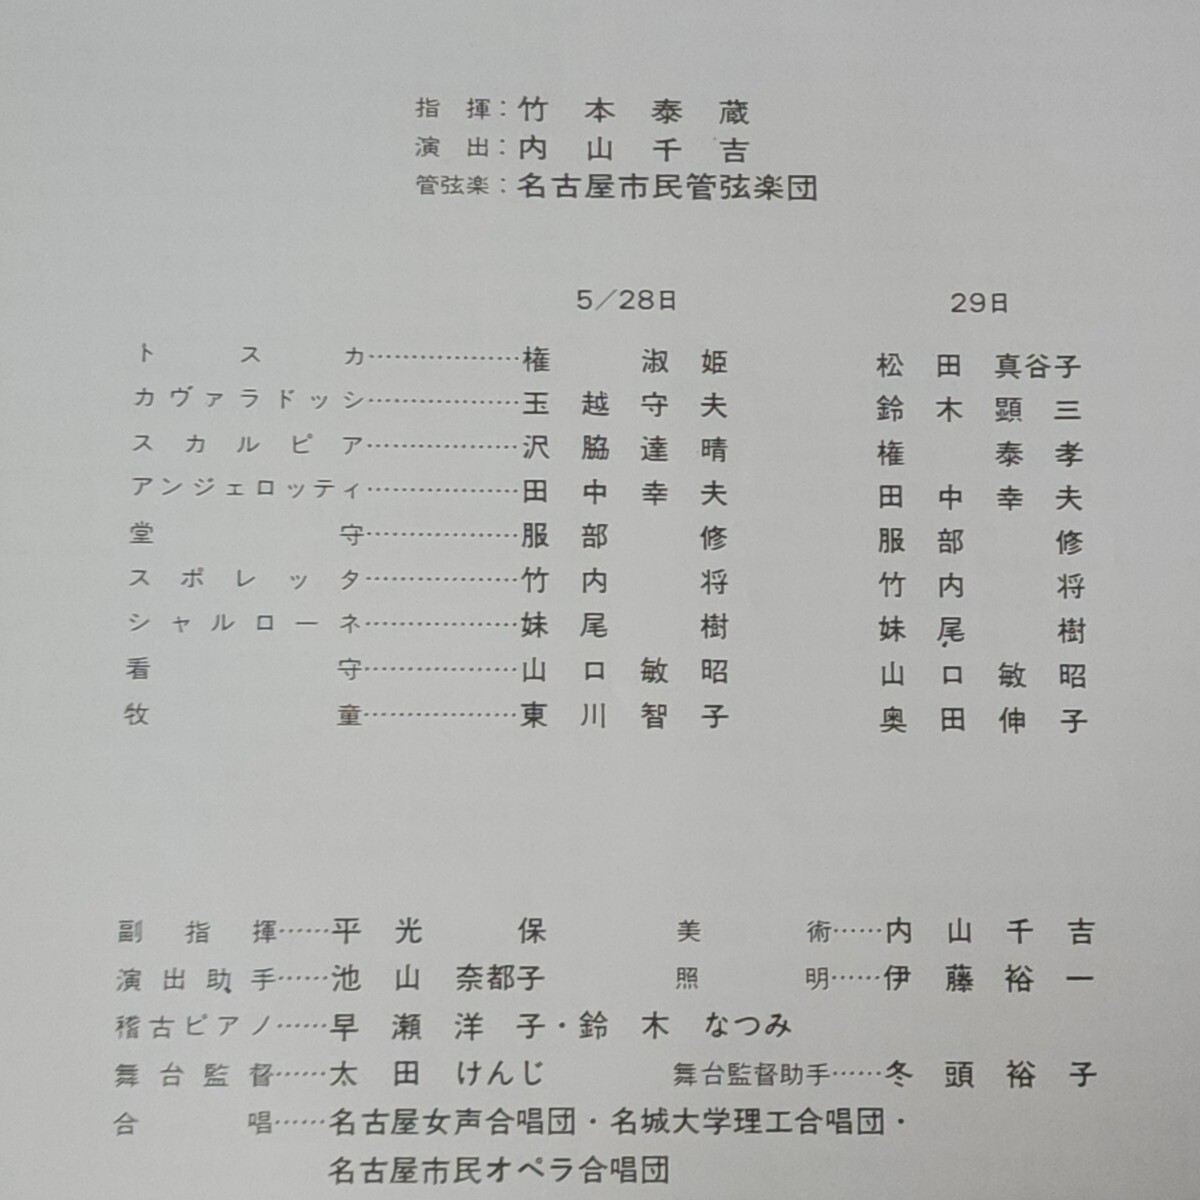 指揮：竹本泰蔵
演出：内山千吉
管弦楽：名古屋市民管弦楽団
5／28日 29日
トスカ………………権淑姫 松田真谷子
カヴァラドッシ………………玉越守夫 鈴木顕三
スカルピア………………沢脇達晴 権泰孝
アンジェロッティ………………田中幸夫 田中幸夫
堂守………………服部修 服部修
スポレッタ………………竹内将 竹内将
シャルローネ………………妹尾樹 妹尾樹
看守………………山口敏昭 山口敏昭
牧童………………東川智子 奥田伸子
副指揮……平光保 美術……内山千吉
演出助手……池山奈都子 照明……伊藤裕一
稽古ピアノ……早瀬洋子・鈴木なつみ
舞台監督……太田けんじ 舞台監督助手……冬頭裕子
合唱……名古屋女声合唱団・名城大学理工合唱団・
名古屋市民オペラ合唱団